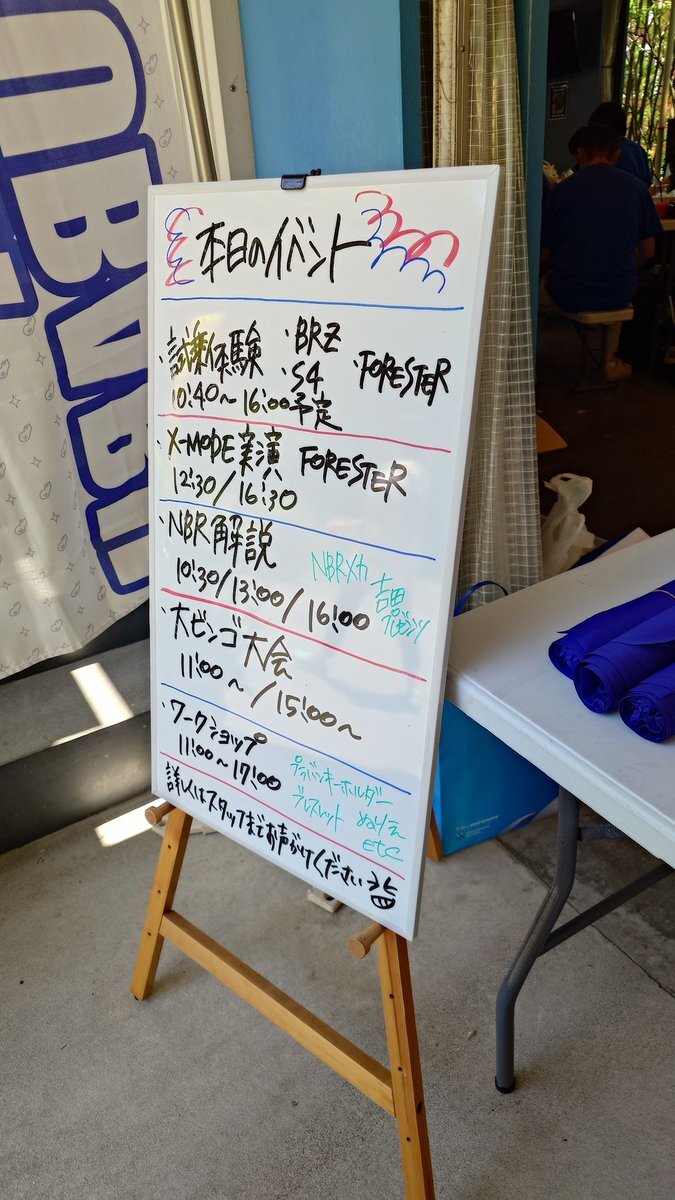 本日のイベント
・試乗体験 ・BRZ
・S4 ・FORESTER
10:40～16:00予定
・X-MODE実演 FORESTER
12:30/16:30
・NBR解説 NBRメカ
10:30/13:00/16:00 吉田
プレゼンツ
・大ビンゴ大会
11:00～/15:00～
・ワークショップ
11:00～17:00 プラバンキーホルダー
ブレスレット ぬりえ
etc
詳しくはスタッフまでお声がけください